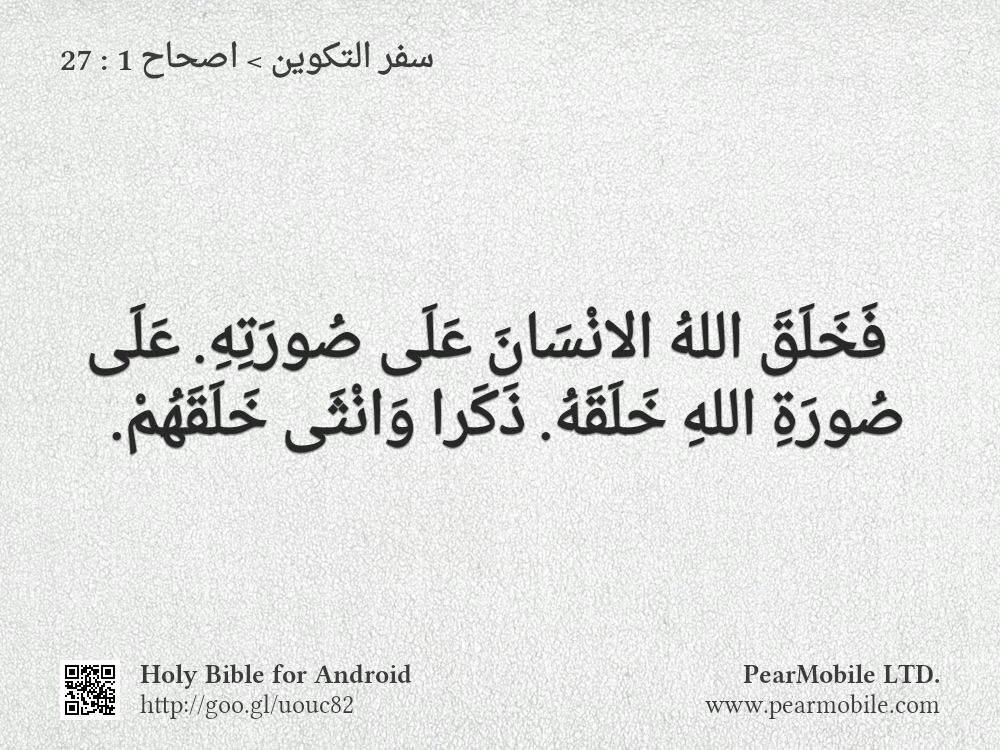 سفر التكوين > اصحاح 1 : 27
فَخَلَقَ اللهُ الانْسَانَ عَلَى صُورَتِهِ. عَلَى
صُورَةِ اللهِ خَلَقَهُ. ذَكَرا وَانْثَى خَلَقَهُمْ.
Holy Bible for Android
http://goo.gl/uouc82
PearMobile LTD.
www.pearmobile.com